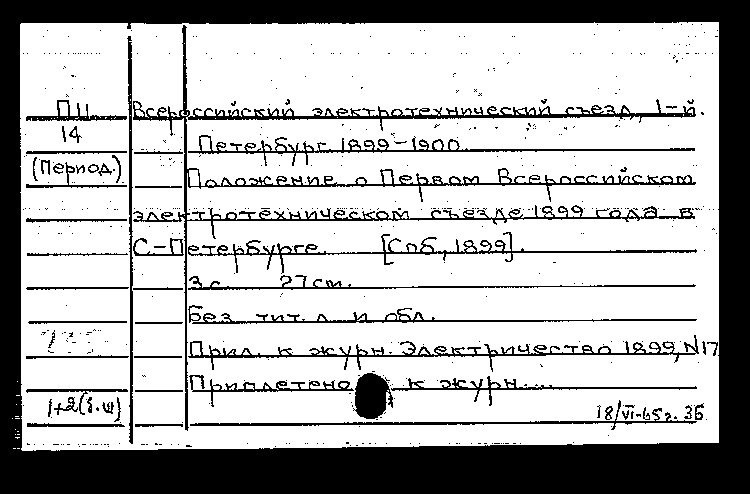 ПЦ Всероссийский электротехнический съезд, 1-й.
14 Петербург. 1899-1900
(Период.) Положение о Первом Всероссийском
электротехническом съезде 1899 года в
С.-Петербурге. [Спб., 1899].
3 с. 27 cm.
Без тит. л и обл.
Прил. к журн. Электричество 1899, N17
Приплетено к журн....
1+2(
18/VI-65г. ЗБ